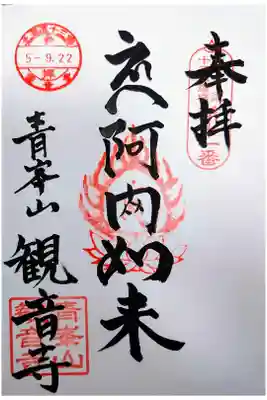 奉拝
阿閦如来
5-9.22
青峯山 観音寺
青峯山
観音寺